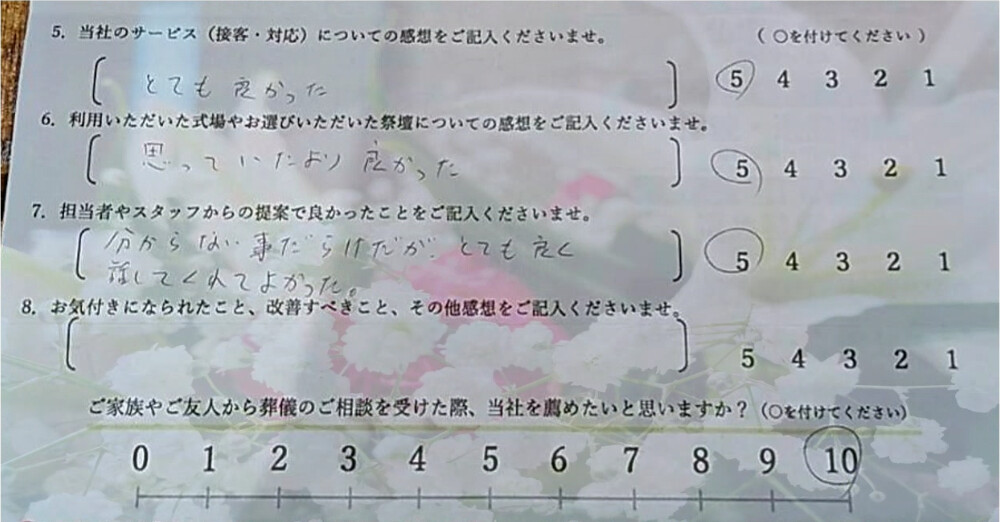 5. 当社のサービス（接客・対応）についての感想をご記入くださいませ。 （ ○を付けてください ）
とても 良かった 5 4 3 2 1
6. 利用いただいた式場やお選びいただいた祭壇についての感想をご記入くださいませ。
思っていたより 良かった 5 4 3 2 1
7. 担当者やスタッフからの提案で良かったことをご記入くださいませ。
分からない事だらけだが、とても良く 5 4 3 2 1
話してくれてよかった。
8. お気付きになられたこと、改善すべきこと、その他感想をご記入くださいませ。
5 4 3 2 1
ご家族やご友人から葬儀のご相談を受けた際、当社を薦めたいと思いますか？（○を付けてください）
0 1 2 3 4 5 6 7 8 9 10